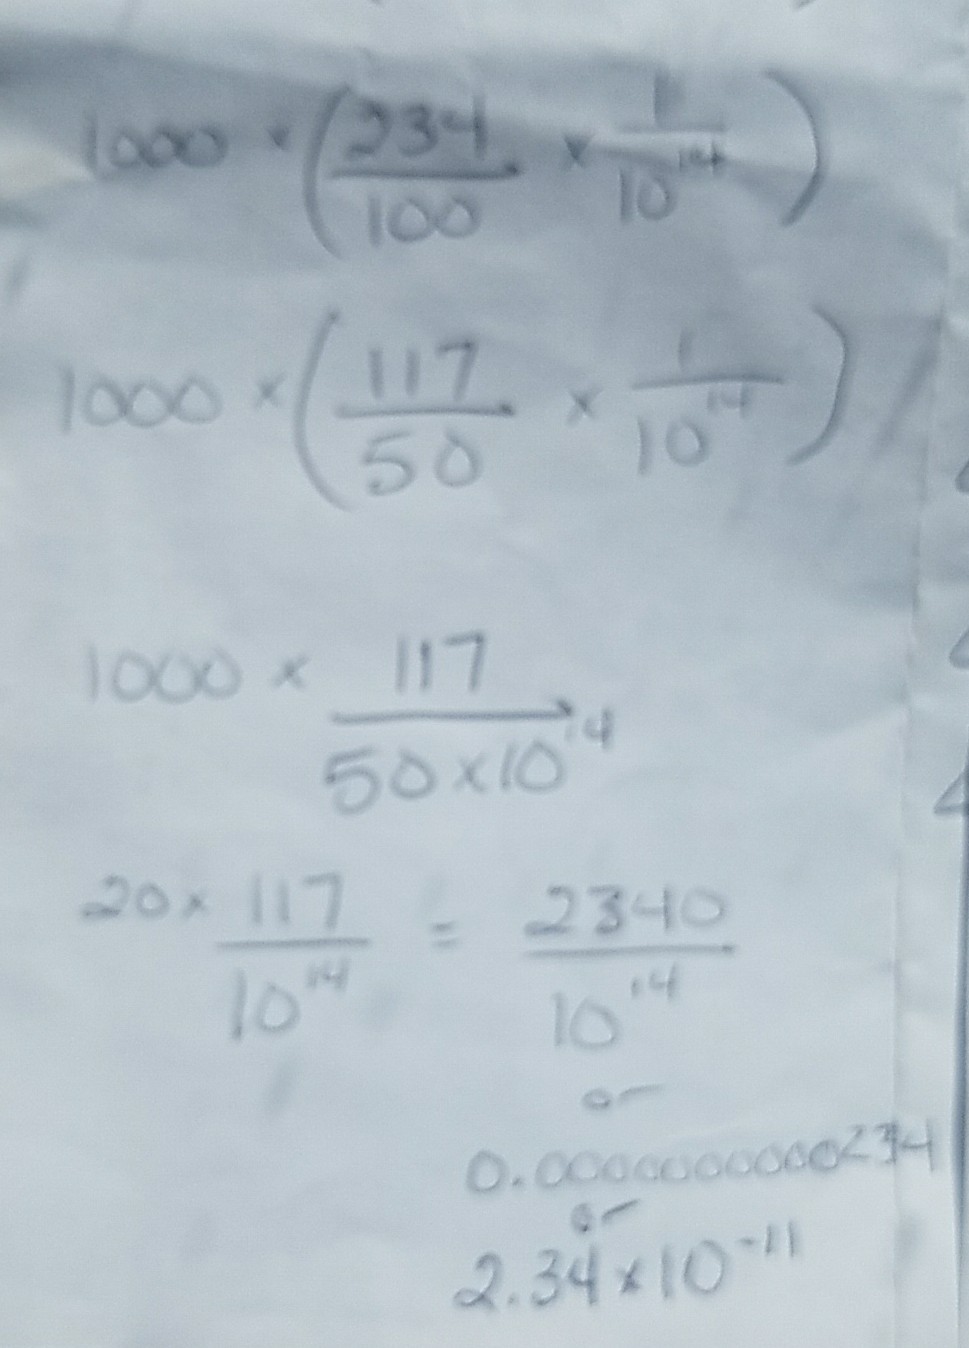 1000 × (234/100 × 1/10^14)
1000 × (117/50 × 1/10^14)
1000 × 117/50×10^14
20 × 117/10^14 = 2340/10^14
or
0.0000000000234
or
2.34 × 10^-11